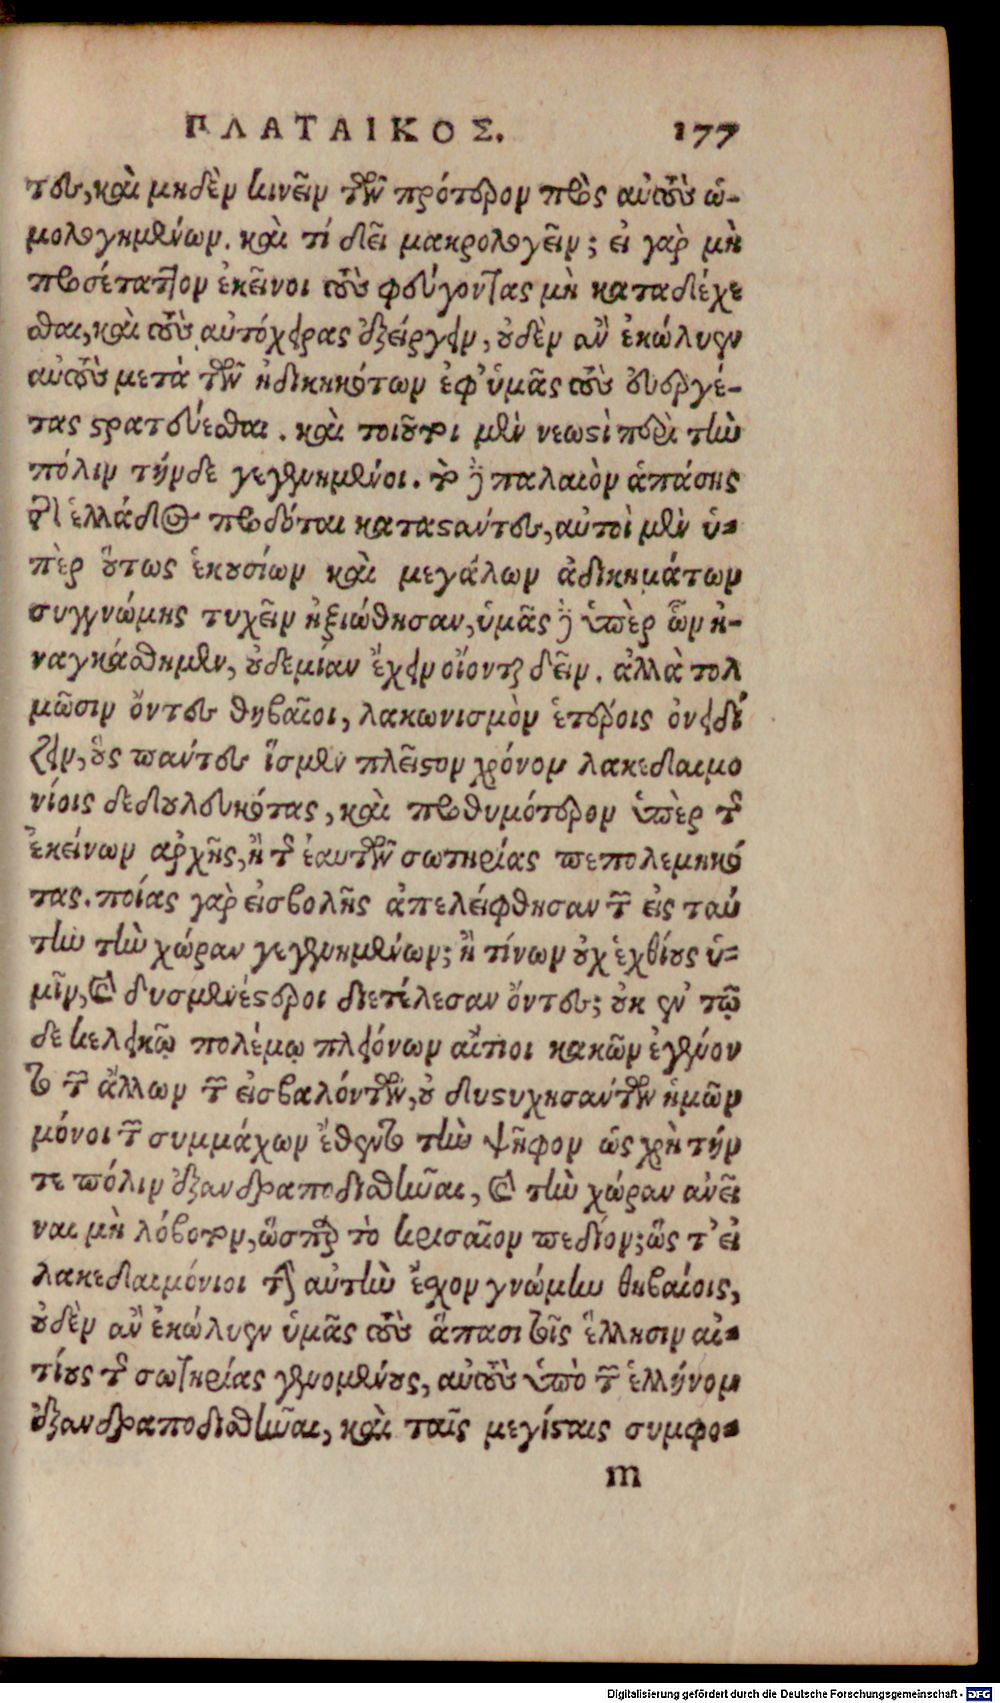 ΠΛΑΤΑΙΚΟΣ. 177
τες, καὶ μηδὲν κινεῖν τῶν πρότερον πρὸς αὐτοὺς ὡ-
μολογημένων. καὶ τί δεῖ μακρολογεῖν; εἰ γὰρ μὴ
προσέταττον ἐκεῖνοι τοὺς φεύγοντας μὴ καταδέχε
σθαι, καὶ τοὺς αὐτόχειρας ἐξείργειν, οὐδὲν ἂν ἐκώλυεν
αὐτοὺς μετὰ τῶν ἠδικηκότων ἐφ' ὑμᾶς τοὺς εὐεργέ-
τας στρατεύεσθαι. καὶ τοιοῦτοι μὲν νεωστὶ περὶ τὴν
πόλιν τήνδε γεγενημένοι. τὸ δὲ παλαιὸν ἁπάσης
τῆς ἑλλάδος προδόται καταστάντες, αὐτοὶ μὲν ὑ-
πὲρ οὕτως ἑκουσίων καὶ μεγάλων ἀδικημάτων
συγγνώμης τυχεῖν ἠξιώθησαν, ὑμᾶς δὲ ὑπὲρ ὧν ἠ-
ναγκάσθημεν, οὐδεμίαν ἔχειν οἴονται δεῖν. ἀλλὰ τολ
μῶσιν ὄντες θηβαῖοι, λακωνισμὸν ἑτέροις ὀνειδί
ζειν, οὓς πάντες ἴσμεν πλεῖστον χρόνον λακεδαιμο
νίοις δεδουλευκότας, καὶ προθυμότερον ὑπὲρ τῆς
ἐκείνων ἀρχῆς, ἢ τῆς ἑαυτῶν σωτηρίας πεπολεμηκό
τας. ποίας γὰρ εἰσβολῆς ἀπελείφθησαν τῶν εἰς ταύ
την τὴν χώραν γεγενημένων; ἢ τίνων οὐχ ἐχθίους ὑ-
μῖν, καὶ δυσμενέστεροι διετέλεσαν ὄντες; οὐκ ἐν τῷ
δεκελεικῷ πολέμῳ πλειόνων αἴτιοι κακῶν ἐγένον
το τῶν ἄλλων τῶν εἰσβαλόντων, οὐ δυστυχησάντων ἡμῶν
μόνοι τῶν συμμάχων ἔθεντο τὴν ψῆφον ὡς χρὴ τήν
τε πόλιν ἐξανδραποδισθῆναι, καὶ τὴν χώραν ἀνεῖ
ναι μηλόβοτον, ὥσπερ τὸ κρισαῖον πεδίον; ὥς τ' εἰ
λακεδαιμόνιοι τὴν αὐτὴν ἔσχον γνώμην θηβαίοις,
οὐδὲν ἂν ἐκώλυεν ὑμᾶς τοὺς ἅπασι τοῖς ἕλλησιν αἰ-
τίους τῆς σωτηρίας γενομένους, αὐτοὺς ὑπὸ τῶν ἑλλήνων
ἐξανδραποδισθῆναι, καὶ ταῖς μεγίσταις συμφο-
m
Digitalisierung gefördert durch die Deutsche Forschungsgemeinschaft - DFG